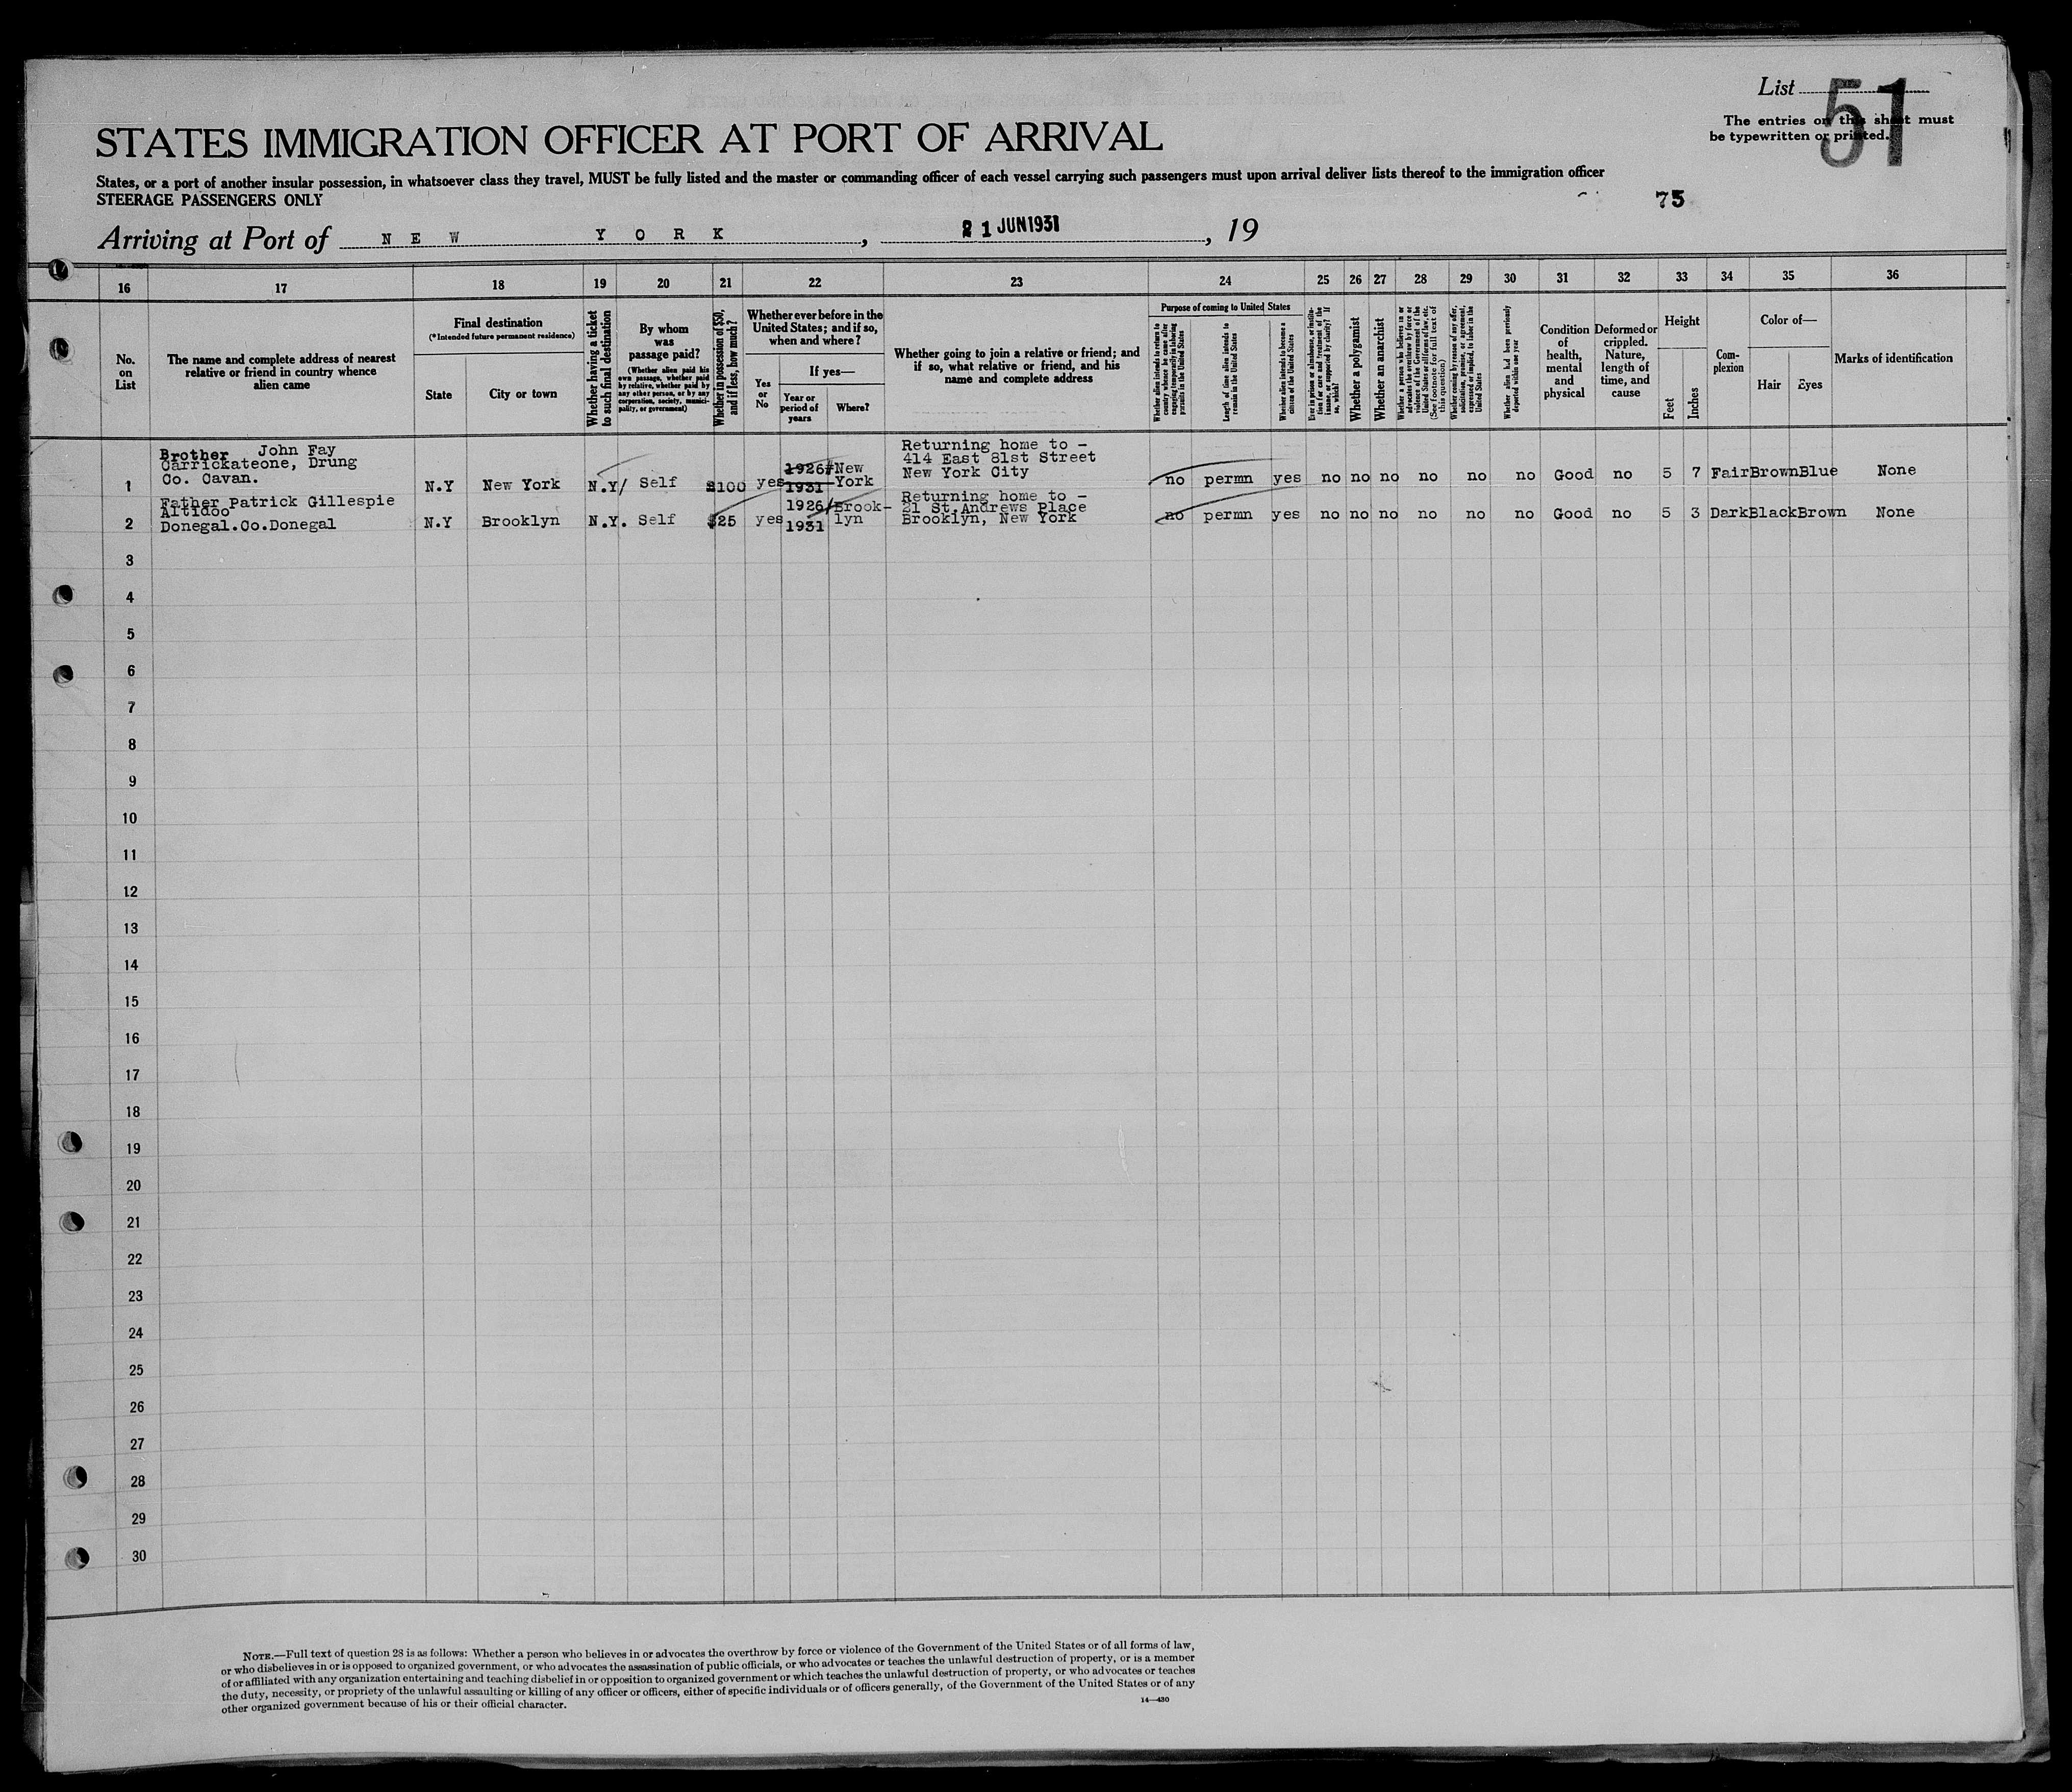 List 51
The entries on this sheet must
be typewritten or printed.
STATES IMMIGRATION OFFICER AT PORT OF ARRIVAL
States, or a port of another insular possession, in whatsoever class they travel, MUST be fully listed and the master or commanding officer of each vessel carrying such passengers must upon arrival deliver lists thereof to the immigration officer
STEERAGE PASSENGERS ONLY
75
Arriving at Port of NEW YORK, 21 JUN 1931, 19
16 17 18 19 20 21 22 23 24 25 26 27 28 29 30 31 32 33 34 35 36
No.
on
List
The name and complete address of nearest
relative or friend in country whence
alien came
Final destination
(*Intended future permanent residence)
State
City or town
Whether having a ticket
to such final destination
By whom
was
passage paid?
(Whether alien paid his
own passage, whether paid
by relative, whether paid by
any other person, or by any
corporation, society, munici-
pality, or government)
Whether in possession of $50,
and if less, how much?
Whether ever before in the
United States; and if so,
when and where?
Yes
or
No
If yes—
Year or
period of
years
Where?
Whether going to join a relative or friend; and
if so, what relative or friend, and his
name and complete address
Purpose of coming to United States
Whether alien intends to return to
country whence he came after
engaging temporarily in laboring
pursuits in the United States
Length of time alien intends to
remain in the United States
Whether alien intends to become a
citizen of the United States
Ever in prison or almshouse, or institu-
tion for care and treatment of the
insane, or supported by charity? If
so, which?
Whether a polygamist
Whether an anarchist
Whether a person who believes in or
advocates the overthrow by force or
violence of the Government of the
United States or all forms of law, etc.
(See footnote for full text of
this question)
Whether coming by reason of any offer,
solicitation, promise, or agreement,
expressed or implied, to labor in the
United States
Whether alien had been previously
deported within one year
Condition
of
health,
mental
and
physical
Deformed or
crippled.
Nature,
length of
time, and
cause
Height
Feet
Inches
Com-
plexion
Color of—
Hair
Eyes
Marks of identification
Brother John Fay
Carrickateone, Drung
Co. Cavan.
1 N.Y New York N.Y/ Self $100 yes 1926/ 1931 New York
Returning home to -
414 East 81st Street
New York City
no permn yes no no no no no no Good no 5 7 Fair Brown Blue None
Father Patrick Gillespie
Altidoo
Donegal.Co.Donegal
2 N.Y Brooklyn N.Y. Self $25 yes 1926/ 1931 Brook-
lyn
Returning home to -
21 St.Andrews Place
Brooklyn, New York
no permn yes no no no no no no Good no 5 3 Dark Black Brown None
3
4
5
6
7
8
9
10
11
12
13
14
15
16
17
18
19
20
21
22
23
24
25
26
27
28
29
30
NOTE.—Full text of question 28 is as follows: Whether a person who believes in or advocates the overthrow by force or violence of the Government of the United States or of all forms of law,
or who disbelieves in or is opposed to organized government, or who advocates the assassination of public officials, or who advocates or teaches the unlawful destruction of property, or is a member
of or affiliated with any organization entertaining and teaching disbelief in or opposition to organized government or which teaches the unlawful destruction of property, or who advocates or teaches
the duty, necessity, or propriety of the unlawful assaulting or killing of any officer or officers, either of specific individuals or of officers generally, of the Government of the United States or of any
other organized government because of his or their official character.
14—430